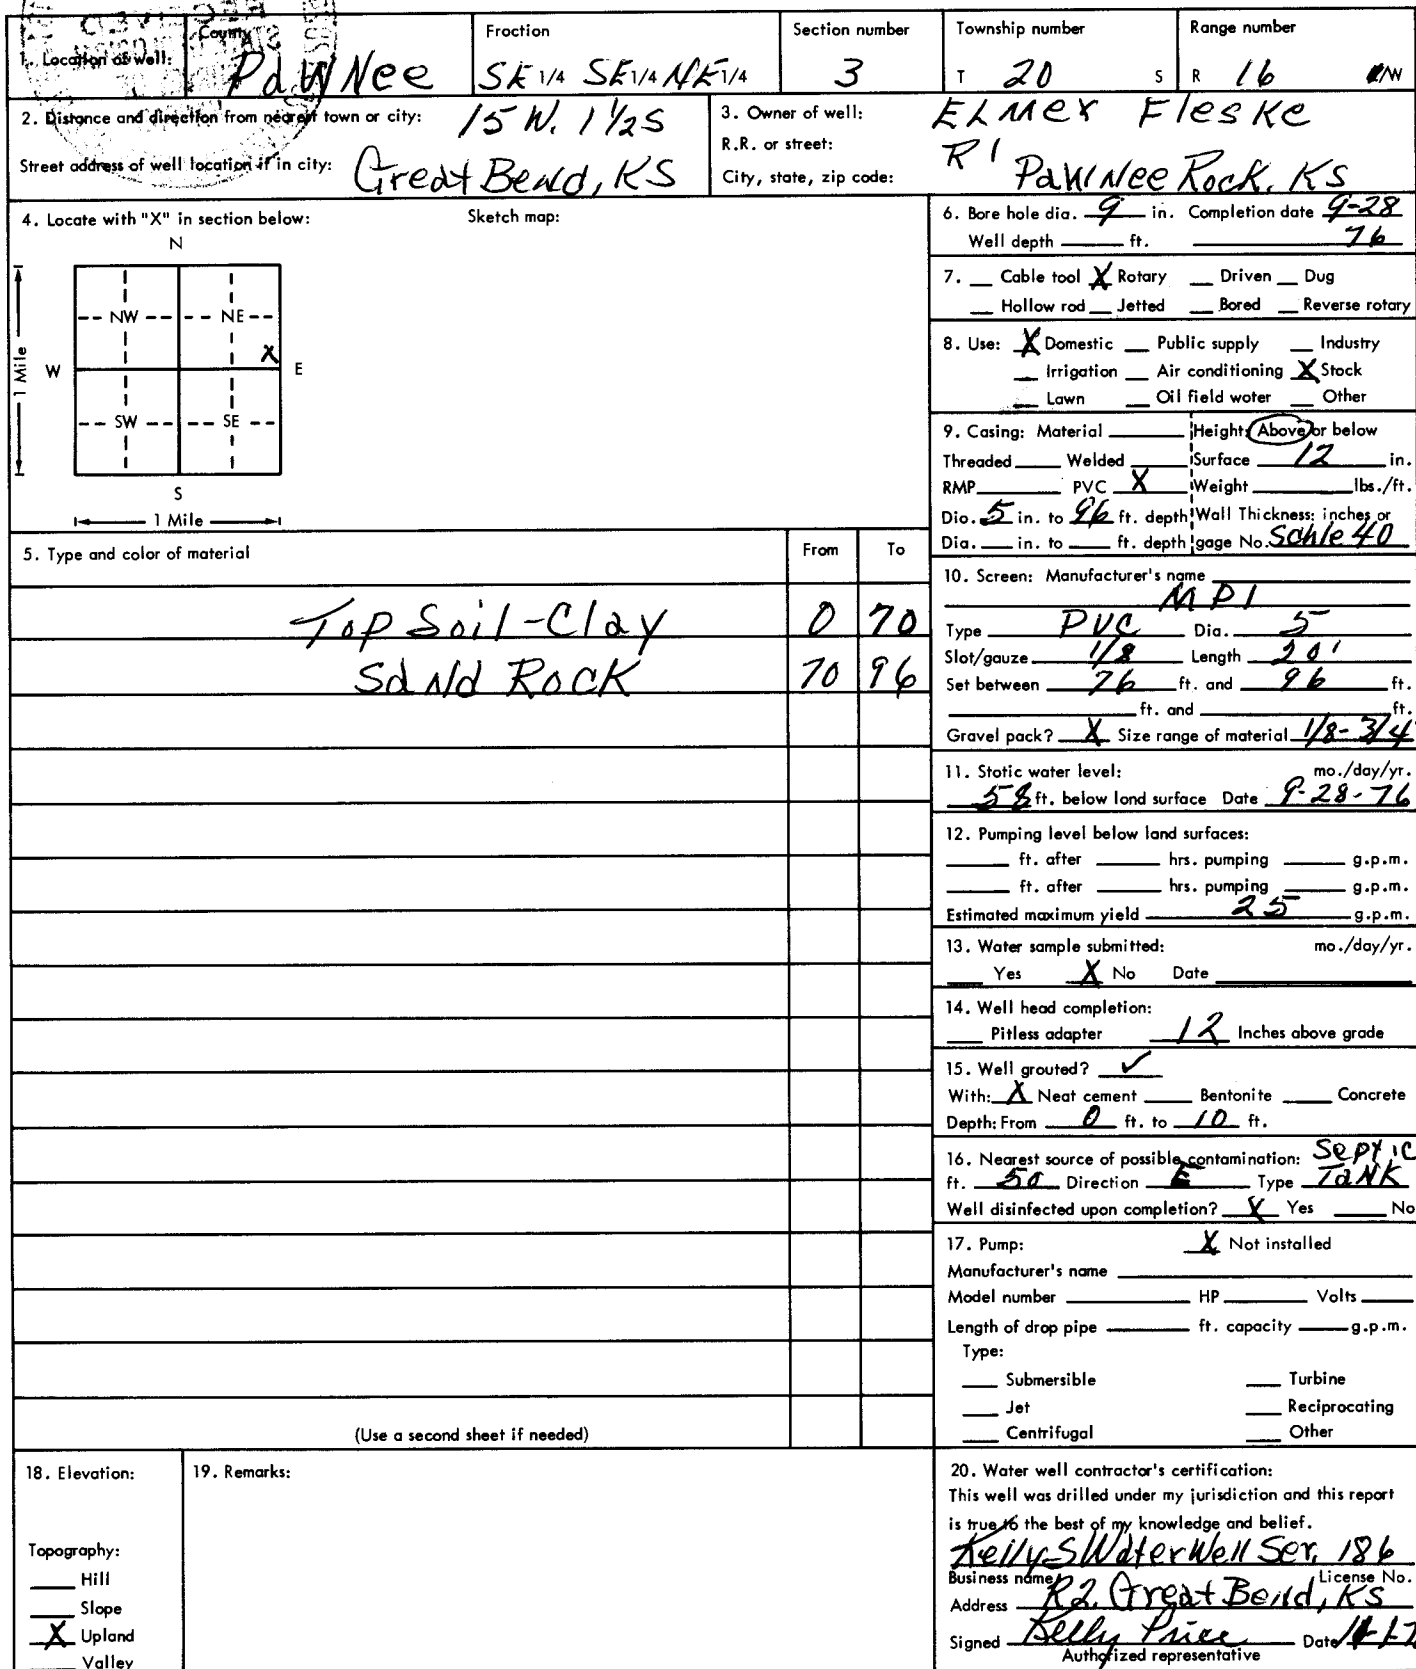 County Fraction Section number Township number Range number
1. Location of well: Pawnee SE 1/4 SE 1/4 NE 1/4 3 T 20 S R 16 E/W
2. Distance and direction from nearest town or city: 15 W. 1 1/2 S
Street address of well location if in city: Great Bend, KS
3. Owner of well: Elmer Fleske
R.R. or street: R 1
City, state, zip code: Pawnee Rock, KS
4. Locate with "X" in section below: Sketch map:
N
NW NE
X
W E
1 Mile
SW SE
S
1 Mile
5. Type and color of material From To
Top Soil-Clay 0 70
Sand Rock 70 96
(Use a second sheet if needed)
6. Bore hole dia. 9 in. Completion date 9-28
Well depth ____ ft. 76
7. __ Cable tool X Rotary __ Driven __ Dug
__ Hollow rod __ Jetted __ Bored __ Reverse rotary
8. Use: X Domestic __ Public supply __ Industry
__ Irrigation __ Air conditioning X Stock
__ Lawn __ Oil field water __ Other
9. Casing: Material ____ Height: Above or below
Threaded ____ Welded ____ Surface 12 in.
RMP ____ PVC X Weight ____ lbs./ft.
Dia. 5 in. to 96 ft. depth Wall Thickness: inches or
Dia. __ in. to __ ft. depth gage No. Schle 40
10. Screen: Manufacturer's name
MPI
Type PVC Dia. 5
Slot/gauze 1/8 Length 20'
Set between 76 ft. and 96 ft.
____ ft. and ____ ft.
Gravel pack? X Size range of material 1/8-3/4
11. Static water level: mo./day/yr.
58 ft. below land surface Date 9-28-76
12. Pumping level below land surfaces:
____ ft. after ____ hrs. pumping ____ g.p.m.
____ ft. after ____ hrs. pumping ____ g.p.m.
Estimated maximum yield 25 g.p.m.
13. Water sample submitted: mo./day/yr.
__ Yes X No Date ____
14. Well head completion:
__ Pitless adapter 12 Inches above grade
15. Well grouted? ✓
With: X Neat cement __ Bentonite __ Concrete
Depth: From 0 ft. to 10 ft.
16. Nearest source of possible contamination: Septic
ft. 50 Direction E Type Tank
Well disinfected upon completion? X Yes __ No
17. Pump: X Not installed
Manufacturer's name ____
Model number ____ HP ____ Volts ____
Length of drop pipe ____ ft. capacity ____ g.p.m.
Type:
__ Submersible __ Turbine
__ Jet __ Reciprocating
__ Centrifugal __ Other
18. Elevation: 19. Remarks:
Topography:
__ Hill
__ Slope
X Upland
__ Valley
20. Water well contractor's certification:
This well was drilled under my jurisdiction and this report
is true to the best of my knowledge and belief.
Kelly's Water Well Ser. 186
Business name License No.
Address R2. Great Bend, KS
Signed Kelly Price Date
Authorized representative